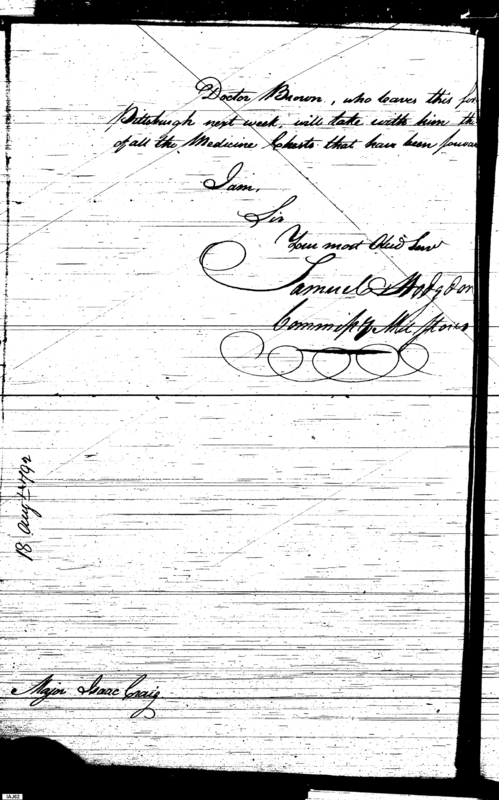 Doctor Brown, who leaves this for
Pittsburgh next week, will take with him th
of all the Medicine Chests that have been forwar
I am,
Sir
Your most Obed Serv
Samuel Hodgdon
Commisy Mil Stores
18 Augt 1792
Major Isaac Craig